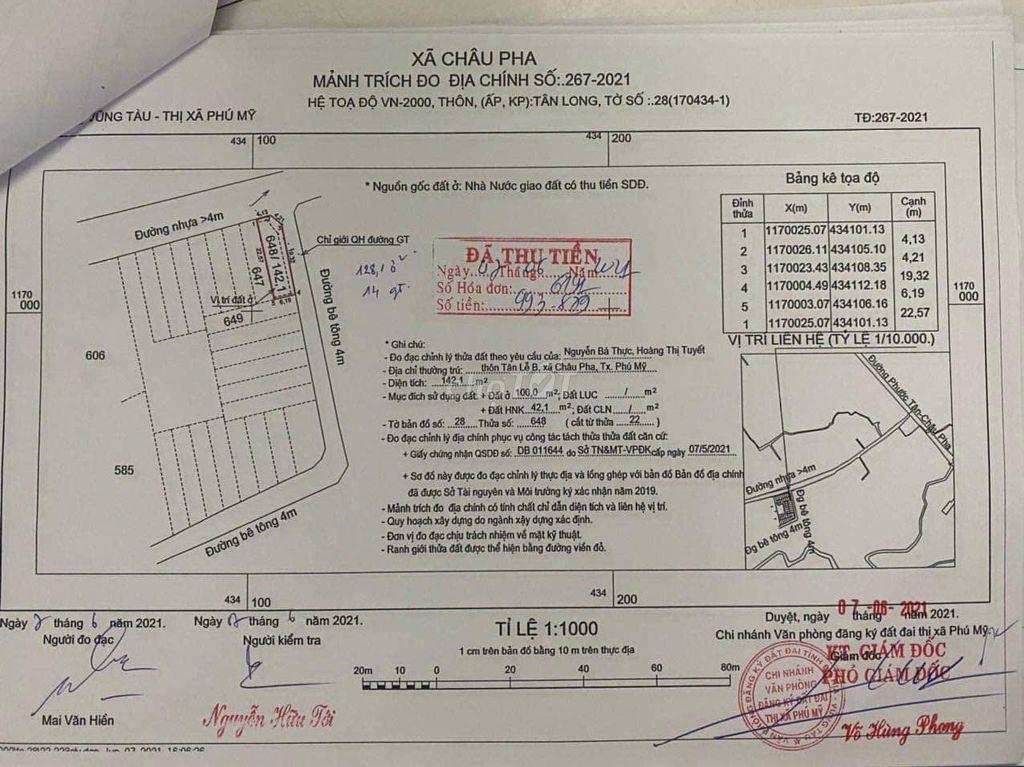 XÃ CHÂU PHA
MẢNH TRÍCH ĐO ĐỊA CHÍNH SỐ:.267-2021
HỆ TOẠ ĐỘ VN-2000, THÔN, (ẤP, KP):TÂN LONG, TỜ SỐ :.28(170434-1)
VŨNG TÀU - THỊ XÃ PHÚ MỸ
TĐ:267-2021
434 100
434 200
* Nguồn gốc đất ở: Nhà Nước giao đất có thu tiền SDĐ.
Đường nhựa >4m
Chỉ giới QH đường GT
648/ 142,1
647
22,57
19,32
Vị trí đất ở
649
5 6,19 4
Đường bê tông 4m
606
585
Đường bê tông 4m
1170
000
128,1 ở
14 gt
ĐÃ THU TIỀN
Ngày 02 Tháng 06 Năm 2021
Số Hóa đơn: 6191
Số tiền: 993.879
Bảng kê tọa độ
Đỉnh thửa X(m) Y(m) Cạnh (m)
1 1170025.07 434101.13
4,13
2 1170026.11 434105.10
4,21
3 1170023.43 434108.35
19,32
4 1170004.49 434112.18
6,19
5 1170003.07 434106.16
22,57
1 1170025.07 434101.13
1170
000
VỊ TRÍ LIÊN HỆ (TỶ LỆ 1/10.000.)
Đường Phước Tân-Châu Pha
Đường nhựa >4m
Đg bê tông 4m
Đg bê tông 4m
* Ghi chú:
- Đo đạc chỉnh lý thửa đất theo yêu cầu của: Nguyễn Bá Thực, Hoàng Thị Tuyết
- Địa chỉ thường trú: thôn Tân Lễ B, xã Châu Pha, Tx. Phú Mỹ
- Diện tích: 142,1 m2
- Mục đích sử dụng đất: + Đất ở 100,0 m2, Đất LUC / m2
+ Đất HNK 42,1 m2, Đất CLN / m2
- Tờ bản đồ số: 28 Thửa số: 648 ( cắt từ thửa 22 )
- Đo đạc chỉnh lý địa chính phục vụ công tác tách thửa thửa đất căn cứ:
+ Giấy chứng nhận QSDĐ số: DB 011644 do Sở TN&MT-VPĐK cấp ngày 07/5/2021
+ Sơ đồ này được đo đạc chỉnh lý thực địa và lồng ghép với bản đồ Bản đồ địa chính
đã được Sở Tài nguyên và Môi trường ký xác nhận năm 2019.
- Mảnh trích đo địa chính có tính chất chỉ dẫn diện tích và liên hệ vị trí.
- Quy hoạch xây dựng do ngành xây dựng xác định.
- Đơn vị đo đạc chịu trách nhiệm về mặt kỹ thuật.
- Ranh giới thửa đất được thể hiện bằng đường viền đỏ.
434 100
434 200
Ngày 2 tháng 6 năm 2021.
Người đo đạc
Mai Văn Hiển
Ngày 02 tháng 6 năm 2021.
Người kiểm tra
Nguyễn Hữu Tới
TỈ LỆ 1:1000
1 cm trên bản đồ bằng 10 m trên thực địa
20m 10 0 20 40 60 80m
Duyệt, ngày 07 tháng -06- 2021 năm 2021.
Chi nhánh Văn phòng đăng ký đất đai thị xã Phú Mỹ
Giám đốc
KT. GIÁM ĐỐC
PHÓ GIÁM ĐỐC
CHI NHÁNH
VĂN PHÒNG
ĐĂNG KÝ ĐẤT ĐAI
THỊ XÃ PHÚ MỸ
Võ Hùng Phong